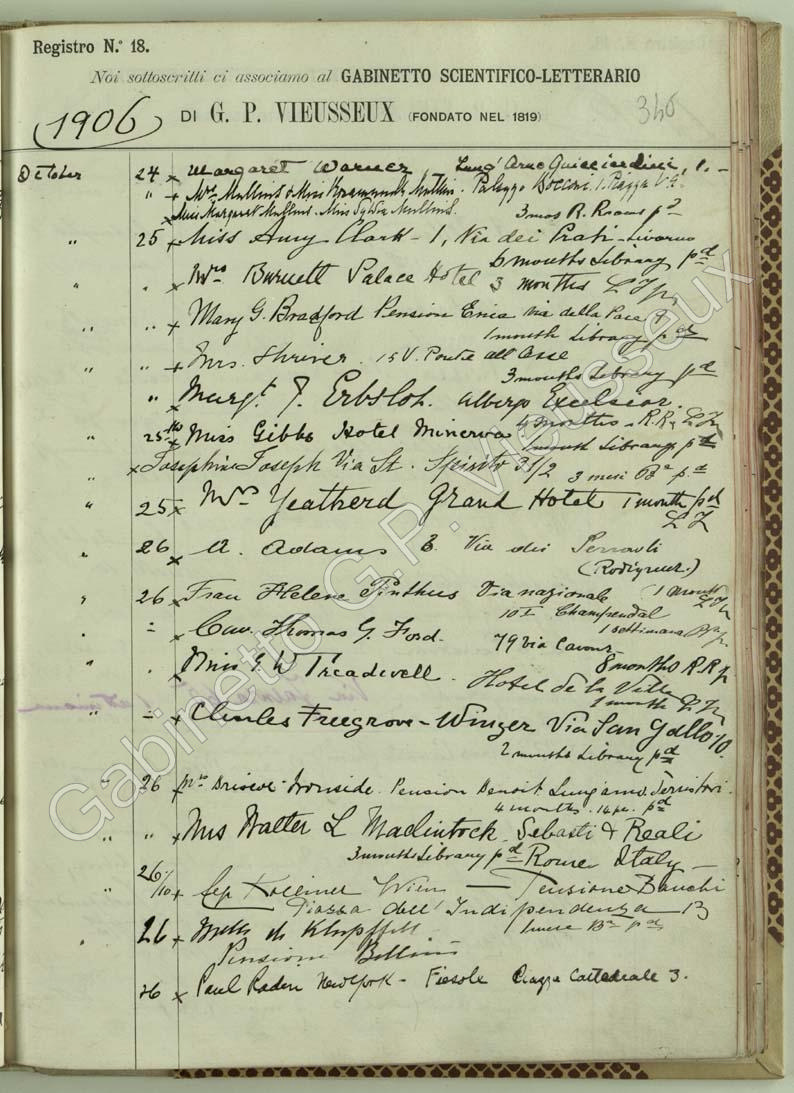 Registro N.° 18.
Noi sottoscritti ci associamo al GABINETTO SCIENTIFICO-LETTERARIO
1906 DI G. P. VIEUSSEUX (FONDATO NEL 1819) 346
October 24 x Margaret Warner, Lung' Arno Guicciardini, 1. -
" " + Mrs Mullins & Miss Rosamund Mullins. Palazzo Bocconi. 1. Piazza V.E.
x Miss Margaret Mullins. Miss Sylvia Mullins. 3 mos R. Rooms pd
" 25 x Miss Amy Clark - 1, Via dei Prati - Livorno
6 months Library pd
" " x Mrs Burnett Palace Hotel 3 months
" " x Mary G. Bradford Pension Erica via della Pace 9
1 month Library pd
" " + Mrs. Shriver. 15 V. Ponte all Asse
3 months Library pd
" x Margt. J. Erbsloh. albergo Excelsior.
4 months - R.R.
" 25th x Miss Gibbs Hotel Minerva 1 month Library pd
" x Josephine Joseph Via St. Spirito 3 mesi pd
" 25 x Mrs Yeatherd Grand Hotel 1 month pd
" 26 x A. Adams Via dei
" 26 x Frau Helene Pinthus Via nazionale 1 Month
10 I Champendal 1 settimana
" x Cav. Thomas G. Ford. 79 via Cavour
8 months R R
" " x Miss G W Treadwell. Hotel de la Ville
1 month
" x Charles Freegrove-Winzer Via San Gallo 70.
2 months Library pd
" 26 x Mrs Driscoe-Ironside. Pension Benoit Lungarno Serristori.
4 months. pd
" " x Mrs Walter L Maclintock Sebasti & Reali
3 months Library pd Rome Italy -
" 26/10 x Wien - Pensione Banchi
Piazza dell' Indipendenza 13
" 26 x pd
Pensione Bellini
26 x Paul Radin New York - Fiesole Piazza Cattedrale 3.
Gabinetto G.P. Vieusseux